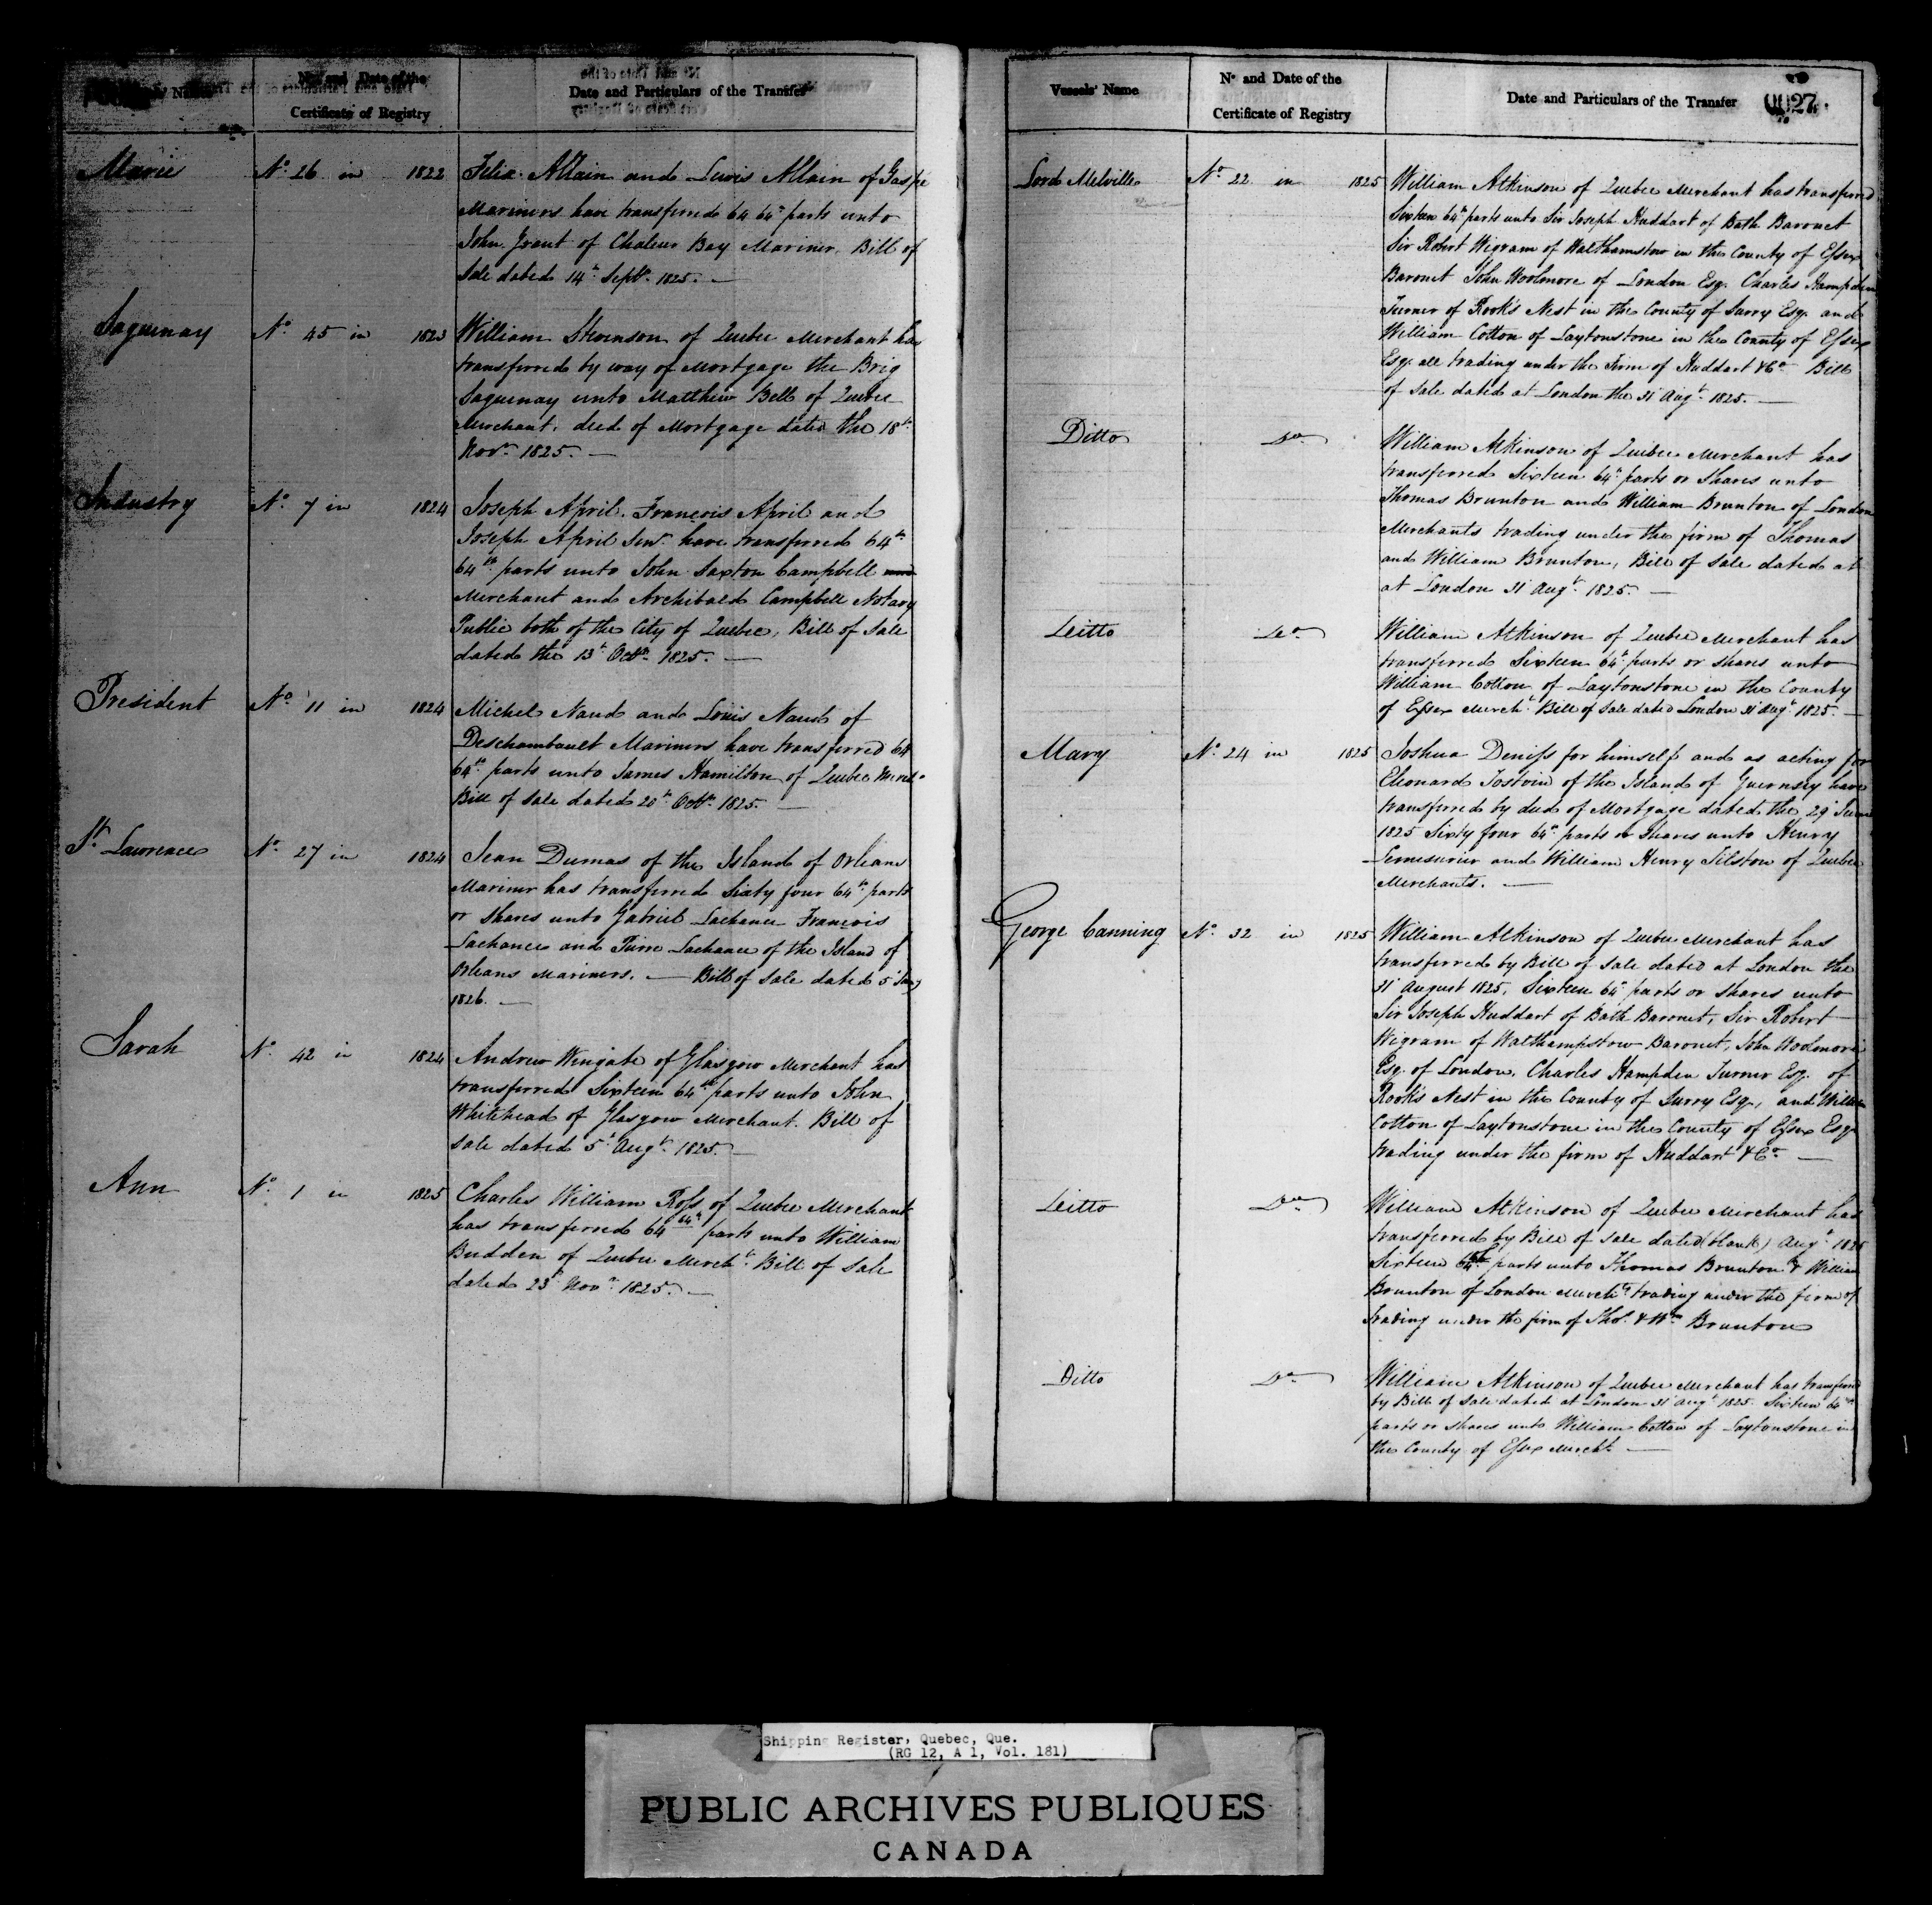 Vessels' Name
No and Date of the
Certificate of Registry
Date and Particulars of the Transfer
Marie No. 26 in 1822 Felix Allain and Lewis Allain of Gaspé
Mariners have transferred 64 64th parts unto
John Grant of Chaleur Bay Mariner. Bill of
Sale dated 14th Septr. 1825. —
Saguenay No. 45 in 1823 William Stevenson of Quebec Merchant has
transferred by way of Mortgage the Brig
Saguenay unto Matthew Bell of Quebec
Merchant. deed of Mortgage dated the 18th
Novr. 1825. —
Industry No. 7 in 1824 Joseph April. François April and
Joseph April Senr. have transferred 64th
64th parts unto John Saxton Campbell and
Merchant and Archibald Campbell Notary
Public both of the City of Quebec, Bill of Sale
dated the 13th Octr. 1825. —
President No. 11 in 1824 Michel Naud and Louis Naud of
Deschambault Mariners have transferred 64
64th parts unto James Hamilton of Quebec Mercht.
Bill of Sale dated 20th Octr. 1825. —
St. Lawrence No. 27 in 1824 Jean Dumas of the Island of Orleans
Mariner has transferred Sixty four 64th parts
or Shares unto Gabriel Lachance François
Lachance and Pierre Lachance of the Island of
Orleans Mariners. — Bill of Sale dated 5 Jany
1826. —
Sarah No. 42 in 1824 Andrew Wingate of Glasgow Merchant has
transferred Sixteen 64th parts unto John
Whitehead of Glasgow Merchant. Bill of
Sale dated 5th Augt. 1825. —
Ann No. 1 in 1825 Charles William Ross of Quebec Merchant
has transferred 64 64th parts unto William
Budden of Quebec Mercht. Bill of Sale
dated 23d Novr. 1825. —
Vessels' Name
No and Date of the
Certificate of Registry
Date and Particulars of the Transfer
0027.
Lord Melville No. 22 in 1825 William Atkinson of Quebec Merchant has transferred
Sixteen 64th parts unto Sir Joseph Huddart of Bath Baronet
Sir Robert Wigram of Walthamstow in the County of Essex
Baronet John Woolmore of London Esq. Charles Hampden
Turner of Rook's Nest in the County of Surry Esq. and
William Cotton of Laytonstone in the County of Essex
Esq. all trading under the Firm of Huddart & Co. Bill
of Sale dated at London the 31 Augt. 1825. —
Ditto Do. William Atkinson of Quebec Merchant has
transferred Sixteen 64th parts or Shares unto
Thomas Brunton and William Brunton of London
Merchants trading under the firm of Thomas
and William Brunton, Bill of Sale dated at
at London 31 Augt. 1825. —
Ditto Do. William Atkinson of Quebec Merchant has
transferred Sixteen 64th parts or shares unto
William Cotton of Laytonstone in the County
of Essex Mercht. Bill of Sale dated London 31 Augt. 1825. —
Mary No. 24 in 1825 Joshua Deniss for himself and as acting for
Eleonard Tostvin of the Island of Guernsey have
transferred by deed of Mortgage dated the 29 June
1825 Sixty four 64th parts or Shares unto Henry
Lemesurier and William Henry Tilston of Quebec
Merchants. —
George Canning No. 32 in 1825 William Atkinson of Quebec Merchant has
transferred by Bill of Sale dated at London the
31 August 1825, Sixteen 64th parts or shares unto
Sir Joseph Huddart of Bath Baronet, Sir Robert
Wigram of Walthampstow Baronet, John Woolmore
Esq. of London, Charles Hampden Turner Esq. of
Rook's Nest in the County of Surry Esq., and William
Cotton of Laytonstone in the County of Essex Esq.
trading under the firm of Huddart & Co. —
Ditto Do. William Atkinson of Quebec Merchant has
transferred by Bill of Sale dated (blank) Augt. 1825
Sixteen 64th parts unto Thomas Brunton & William
Brunton of London Mercht. trading under the firm of
trading under the firm of Thos. & Wm. Brunton
Ditto Do. William Atkinson of Quebec Merchant has transferred
by Bill of Sale dated at London 31 Augt. 1825. Sixteen 64th
parts or shares unto William Cotton of Laytonstone in
the County of Essex Mercht. —
Shipping Register, Quebec, Que.
(RG 12, A 1, Vol. 181)
PUBLIC ARCHIVES PUBLIQUES
CANADA